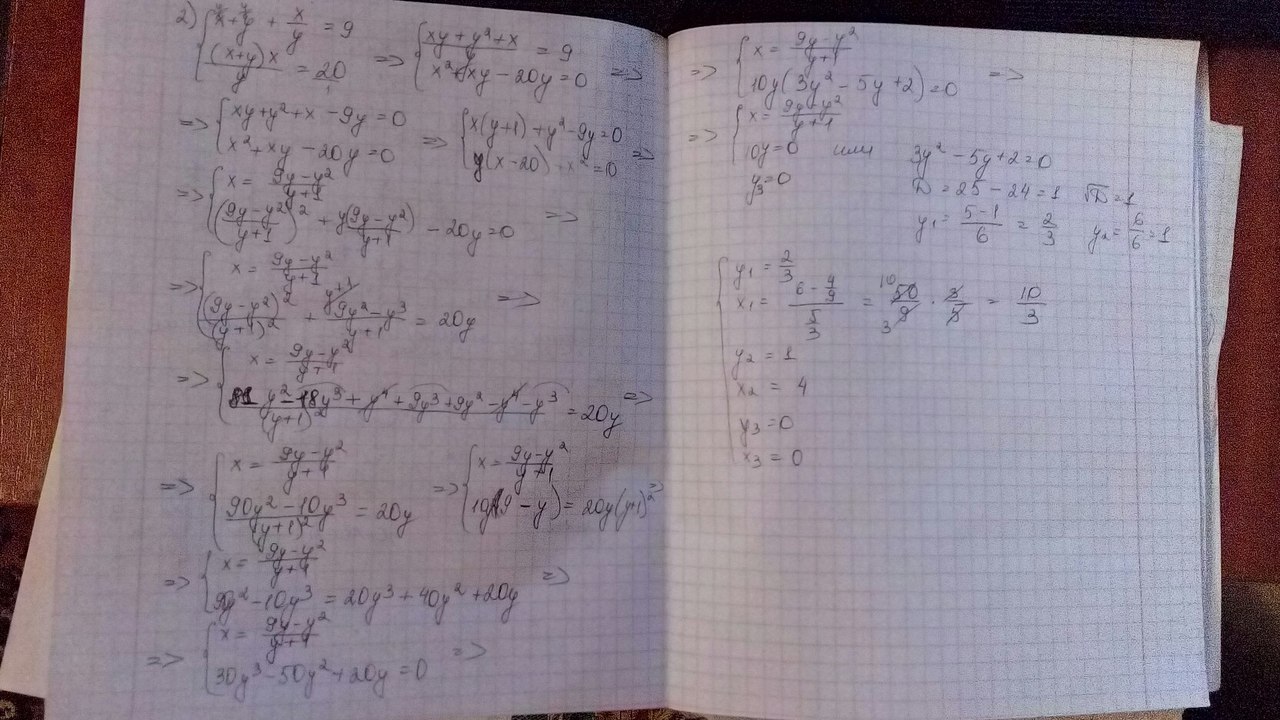 2) { x+y + x/y = 9 => { (xy+y²+x)/y = 9
(x+y)x/y = 20 x²+xy-20y=0 =>
=> { xy+y²+x-9y=0 => { x(y+1)+y²-9y=0
x²+xy-20y=0 y(x-20) =>
=> { x = (9y-y²)/(y+1)
((9y-y²)/(y+1))² + y(9y-y²)/(y+1) - 20y=0 =>
=> { x = (9y-y²)/(y+1)
(9y-y²)²/(y+1)² + (9y²-y³)/(y+1) = 20y =>
y+1
=> { x = (9y-y²)/(y+1)
(81y²-18y³+y⁴+9y³+9y²-y⁴-y³)/(y+1)² = 20y =>
=> { x = (9y-y²)/(y+1) => { x = (9y-y²)/(y+1)
(90y²-10y³)/(y+1)² = 20y (9-y) = 20y(y+1)² =>
=> { x = (9y-y²)/(y+1)
90y²-10y³ = 20y³+40y²+20y =>
=> { x = (9y-y²)/(y+1)
30y³-50y²+20y=0 =>
=> { x = (9y-y²)/(y+1)
10y(3y²-5y+2)=0 =>
=> { x = (9y-y²)/(y+1)
10y=0 или 3y²-5y+2=0
y₃=0 D=25-24=1 √D=1
y₁ = (5-1)/6 = 2/3 y₂ = 6/6 = 1
{ y₁ = 2/3
x₁ = (6-4/9)/(5/3) = 50/9 · 3/5 = 10/3
10
3
y₂ = 1
x₂ = 4
y₃ = 0
x₃ = 0